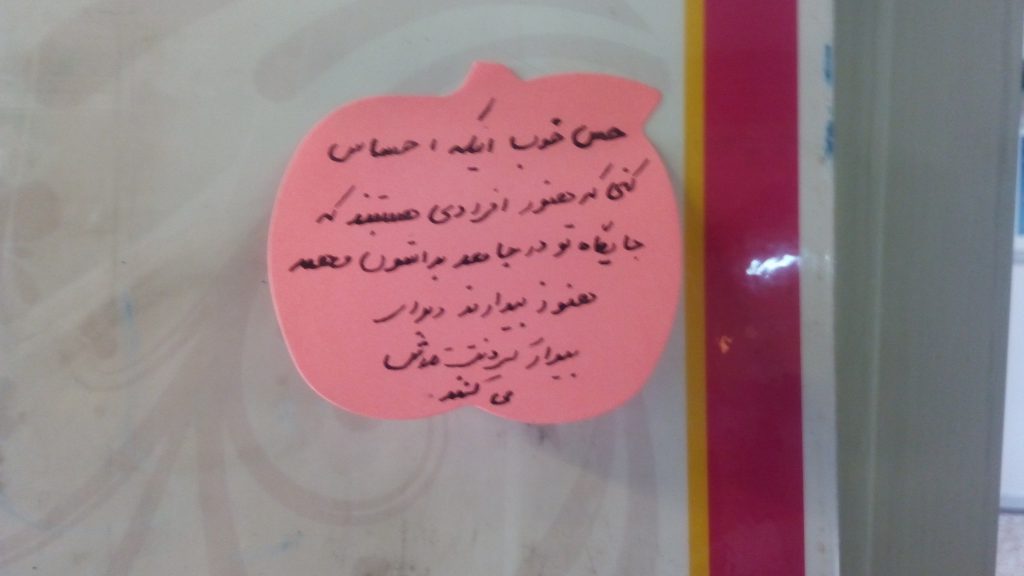 حس خوب اینکه احساس
کنی که هنوز افرادی هستند که
جایگاه تو در جامعه براشون مهمه
هنوز بیدارند و برای
بیدار کردنت تلاش
می کنند.